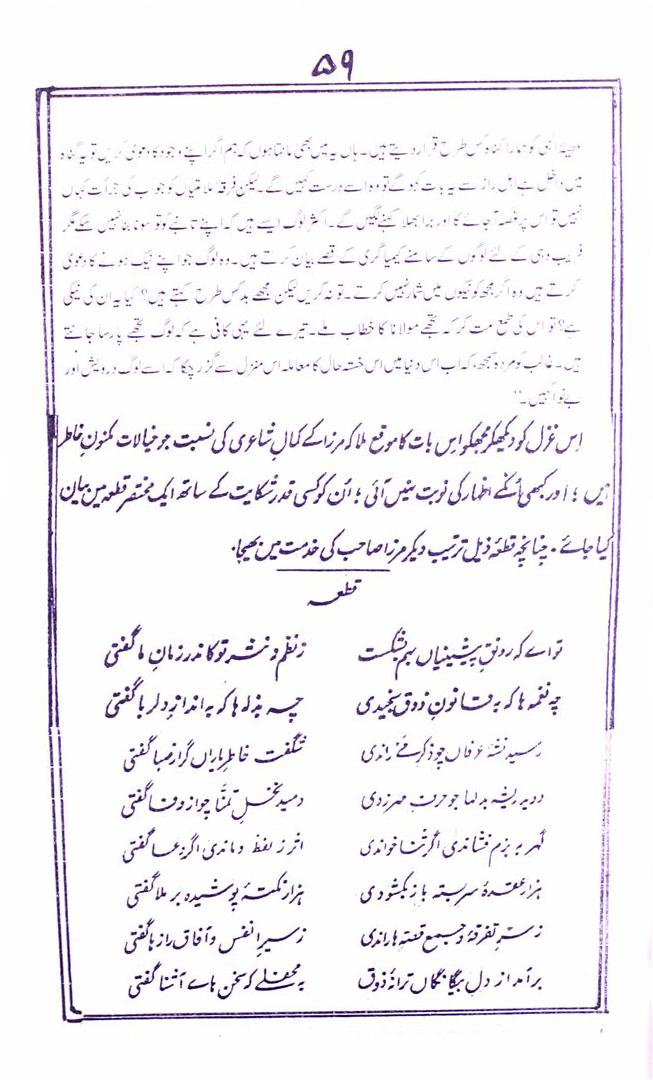 ۵۹
ہستیٔ الٰہی کو ہمارا گناہ کس طرح قرار دیتے ہیں۔ ہاں یہ میں بھی مانتا ہوں کہ ہم اگر اپنے وجود کا دعویٰ کریں تو یہ گناہ
میں داخل ہے اہل راز سے یہ بات کہو گے تو وہ اسے درست کہیں گے۔ لیکن فرقہ ملامتیاں کو جواب کی جرأت کہاں
نہیں تو اس پر غصہ آجائے گا اور برا بھلا کہنے لگیں گے۔ اکثر لوگ ایسے ہیں کہ اپنے تانبے کو تو سونا بنا نہیں سکے مگر
فریب دہی کے لئے لوگوں کے سامنے کیمیا گری کے قصے بیان کرتے ہیں۔ وہ لوگ جو اپنے نیک ہونے کا دعویٰ
کرتے ہیں وہ اگر مجھ کو نیکوں میں شمار نہیں کرتے۔ تو نہ کریں لیکن مجھے بد کس طرح کہتے ہیں؟ کیا یہ ان کی نیکی
ہے؟ تو اس کی طمع مت کر کہ تجھے مولانا کا خطاب ملے۔ تیرے لئے یہی کافی ہے کہ لوگ تجھے پارسا جانتے
ہیں۔ غالب کو مردہ سمجھ، کہ اب اس دنیا میں اس خستہ حال کا معاملہ اس منزل سے گزر چکا کہ اسے لوگ درویش اور
بے نوا کہیں۔"
اِس غزل کو دیکھکر مجھکو اِس بات کا موقع ملا کہ مرزا کے کمالِ شاعری کی نسبت جو خیالات مکنونِ خاطر
ہیں؛ اور کبھی اُنکے اظہار کی نوبت نہیں آئی؛ اُن کو کسی قدر شکایت کے ساتھ ایک مختصر قطعہ میں بیان
کیا جائے۔ چنانچہ قطعۂ ذیل ترتیب دیکر مرزا صاحب کی خدمت میں بھیجا۔
قطعہ
تو اے کہ رونقِ پیشینیاں بہم بشکست زنظم و نثرِ تو کاندر زمانِ ما گفتی
چہ نغمہ ہا کہ بہ قانونِ ذوق سنجیدی چہ بذلہ ہا کہ بہ اندازِ دلربا گفتی
رسید نشۂ عرفاں چو ذکرِ مے راندی شگفت خاطرِ یاراں گر از صبا گفتی
دوید ریشہ بدلہا چو حرفِ مہر زدی دمید نخلِ تمنّا چو از وفا گفتی
گہر بہ بزم فشاندی اگر ثنا خواندی اثر ز لفظ دماندی اگر دعا گفتی
ہزار عقدۂ سربستہ باز بکشودی ہزار نکتۂ پوشیدہ برملا گفتی
ز سرِّ تفرقہ و جمع قصّہ ہا راندی ز سیرِ انفس و آفاق راز ہا گفتی
برآمد از دلِ بیگانگاں ترانۂ ذوق بہ محفلے کہ سخن ہائے آشنا گفتی